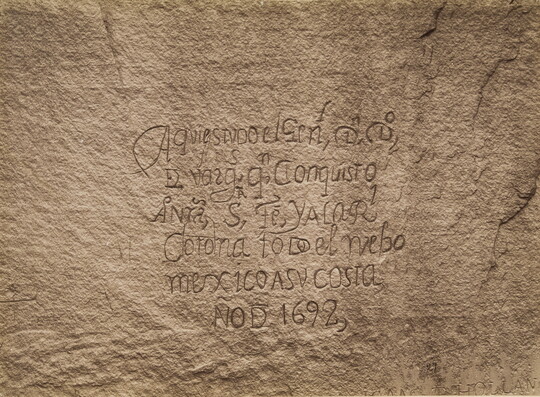 Aqui estudo el Genl, Dn. Do,
D Vargs, qn, Conquisto
Â Nra, S, Fe, Y A la Rl
Corona todo el nuebo
mexico A su costa
ÑO D 1692,